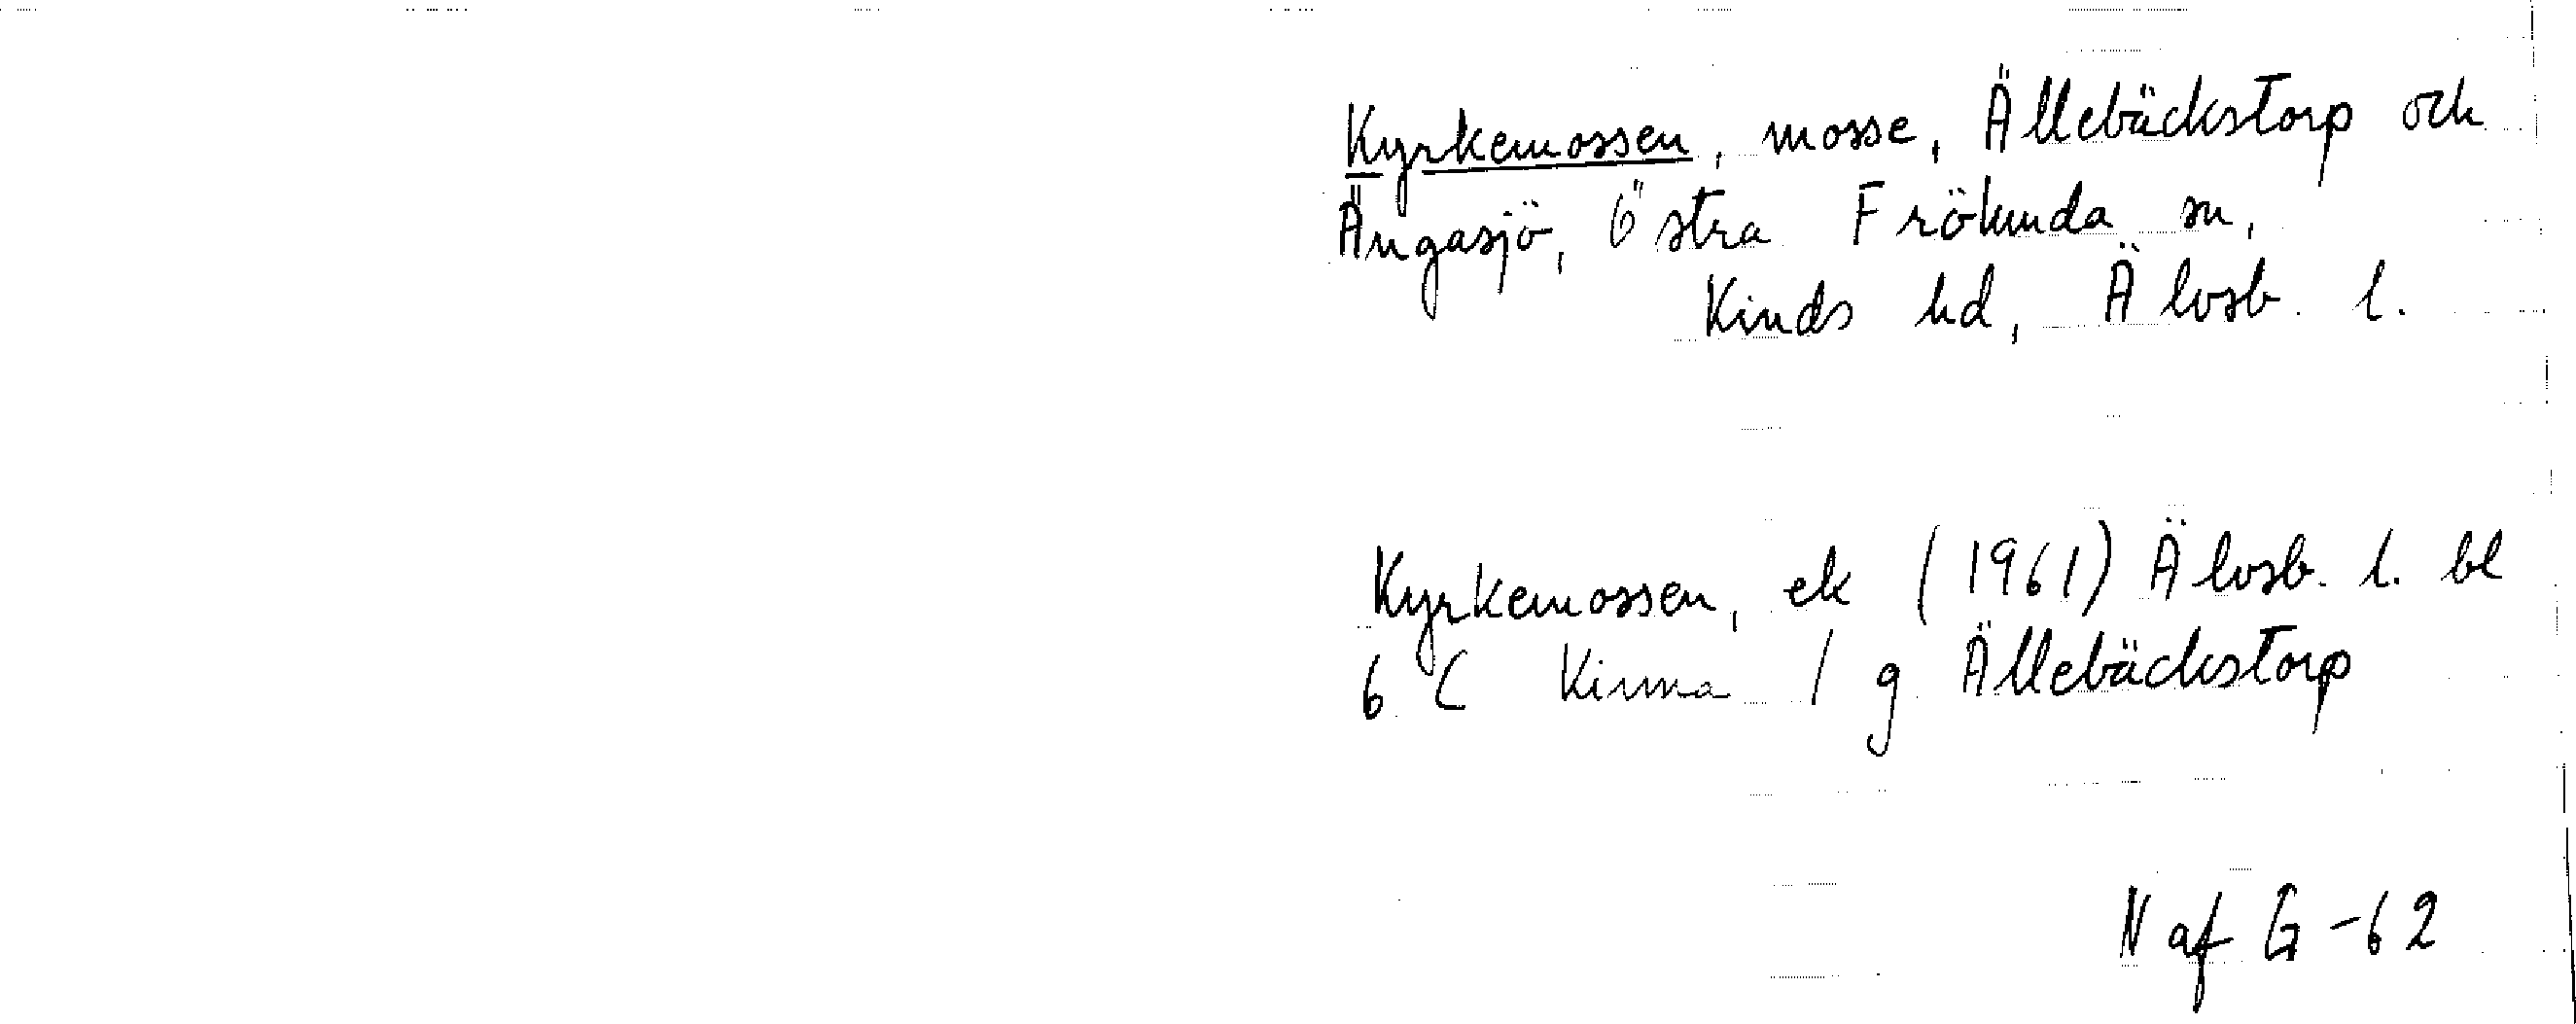 Kyrkemossen, mosse, Ällebäckstorp och
Ängasjö, Östra Frölunda sn,
Kinds hd, Älvsb. l.
Kyrkemossen, ek (1961) Älvsb. l. bl
6 C Kinna / g Ällebäckstorp
N af G -62